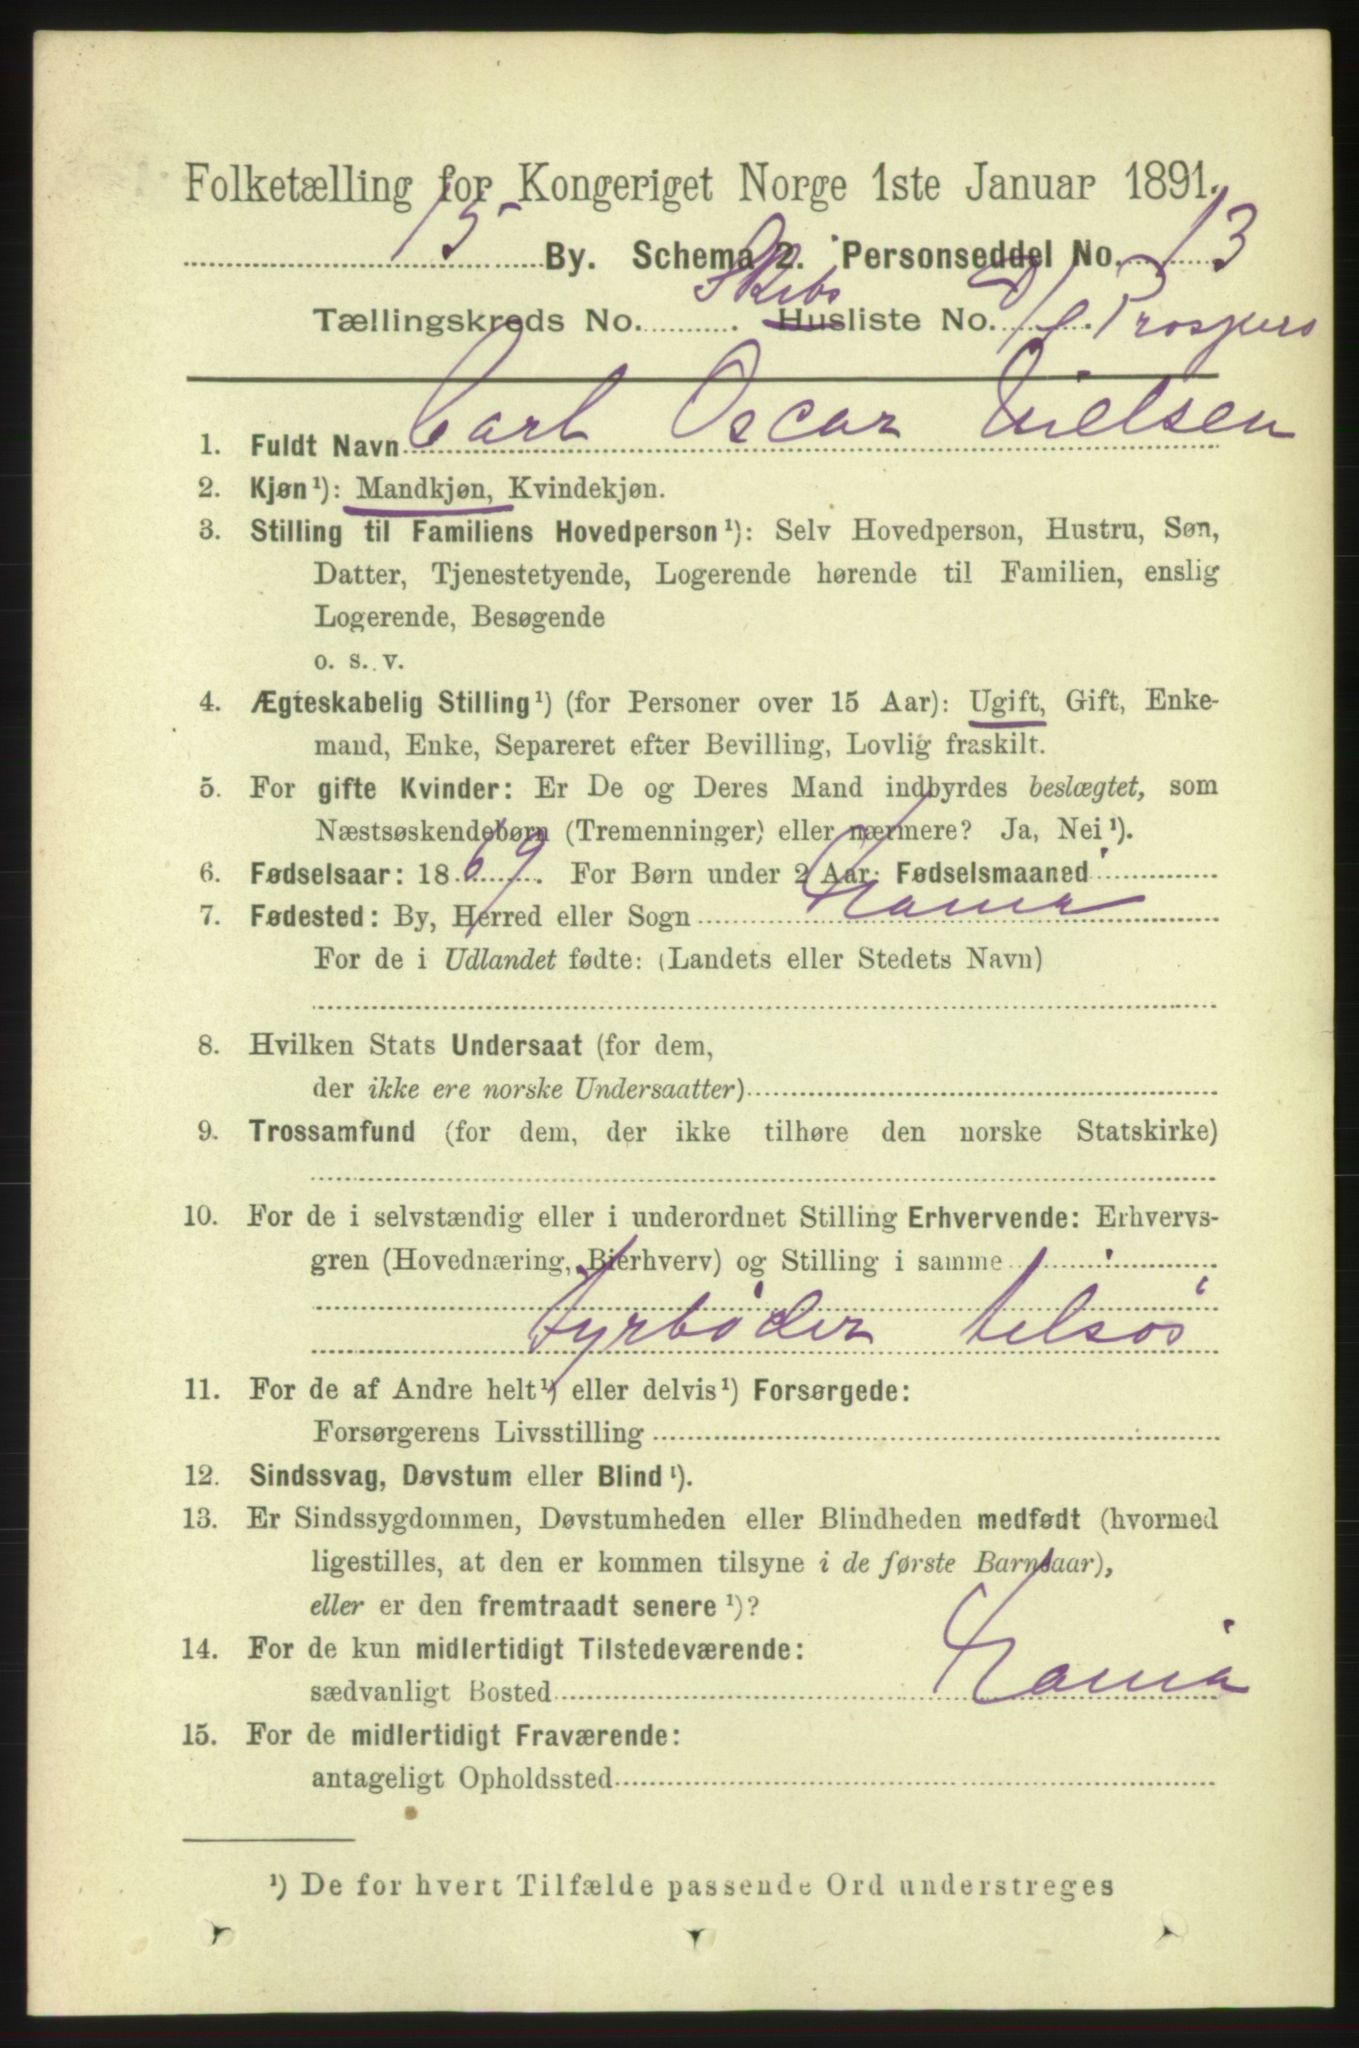 Folketælling for Kongeriget Norge 1ste Januar 1891.
15 By. Schema 2. Personseddel No. 13
Tællingskreds No. Skibs Husliste No. Prospero
1. Fuldt Navn Carl Oscar Nielsen
2. Kjøn¹): Mandkjøn, Kvindekjøn.
3. Stilling til Familiens Hovedperson¹): Selv Hovedperson, Hustru, Søn,
Datter, Tjenestetyende, Logerende hørende til Familien, enslig
Logerende, Besøgende
o. s. v.
4. Ægteskabelig Stilling¹) (for Personer over 15 Aar): Ugift, Gift, Enke-
mand, Enke, Separeret efter Bevilling, Lovlig fraskilt.
5. For gifte Kvinder: Er De og Deres Mand indbyrdes beslægtet, som
Næstsøskendebørn (Tremenninger) eller nærmere? Ja, Nei¹).
6. Fødselsaar: 1869. For Børn under 2 Aar: Fødselsmaaned
7. Fødested: By, Herred eller Sogn
For de i Udlandet fødte: (Landets eller Stedets Navn)
8. Hvilken Stats Undersaat (for dem,
der ikke ere norske Undersaatter)
9. Trossamfund (for dem, der ikke tilhøre den norske Statskirke)
10. For de i selvstændig eller i underordnet Stilling Erhvervende: Erhvervs-
gren (Hovednæring, Bierhverv) og Stilling i samme
Fyrbøder tilsøs
11. For de af Andre helt¹) eller delvis¹) Forsørgede:
Forsørgerens Livsstilling
12. Sindssvag, Døvstum eller Blind¹).
13. Er Sindssygdommen, Døvstumheden eller Blindheden medfødt (hvormed
ligestilles, at den er kommen tilsyne i de første Barnsaar),
eller er den fremtraadt senere¹)?
14. For de kun midlertidigt Tilstedeværende:
sædvanligt Bosted
15. For de midlertidigt Fraværende:
antageligt Opholdssted
¹) De for hvert Tilfælde passende Ord understreges